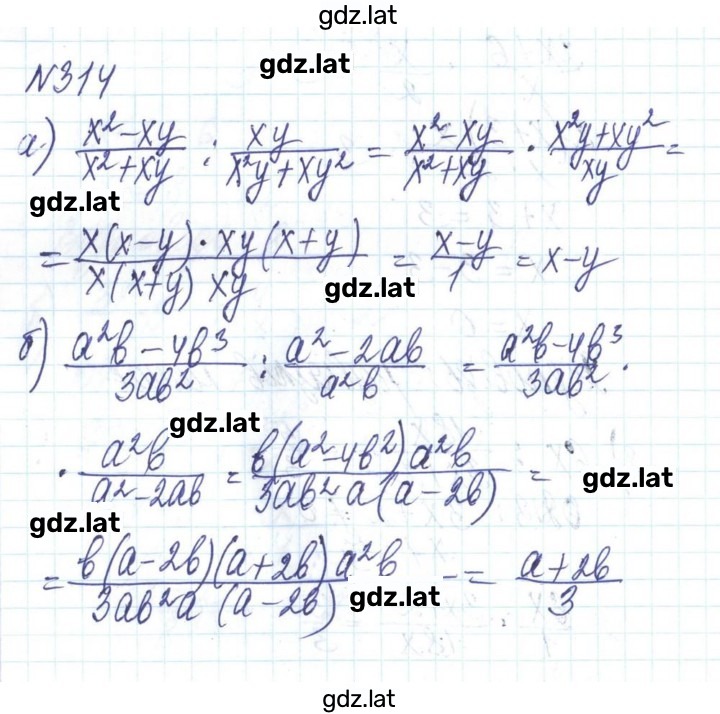 gdz.lat
gdz.lat
N314
а) (x²-xy)/(x²+xy) : xy/(x²y+xy²) = (x²-xy)/(x²+xy) · (x²y+xy²)/xy =
gdz.lat
= (x(x-y)·xy(x+y))/(x(x+y) xy) = (x-y)/1 = x-y
gdz.lat
б) (a²b-4b³)/(3ab²) : (a²-2ab)/(a²b) = (a²b-4b³)/(3ab²) ·
gdz.lat
· a²b/(a²-2ab) = (b(a²-4b²)a²b)/(3ab² a(a-2b)) =
gdz.lat
gdz.lat
= (b(a-2b)(a+2b)a²b)/(3ab²a(a-2b)) -= (a+2b)/3
gdz.lat
gdz.lat